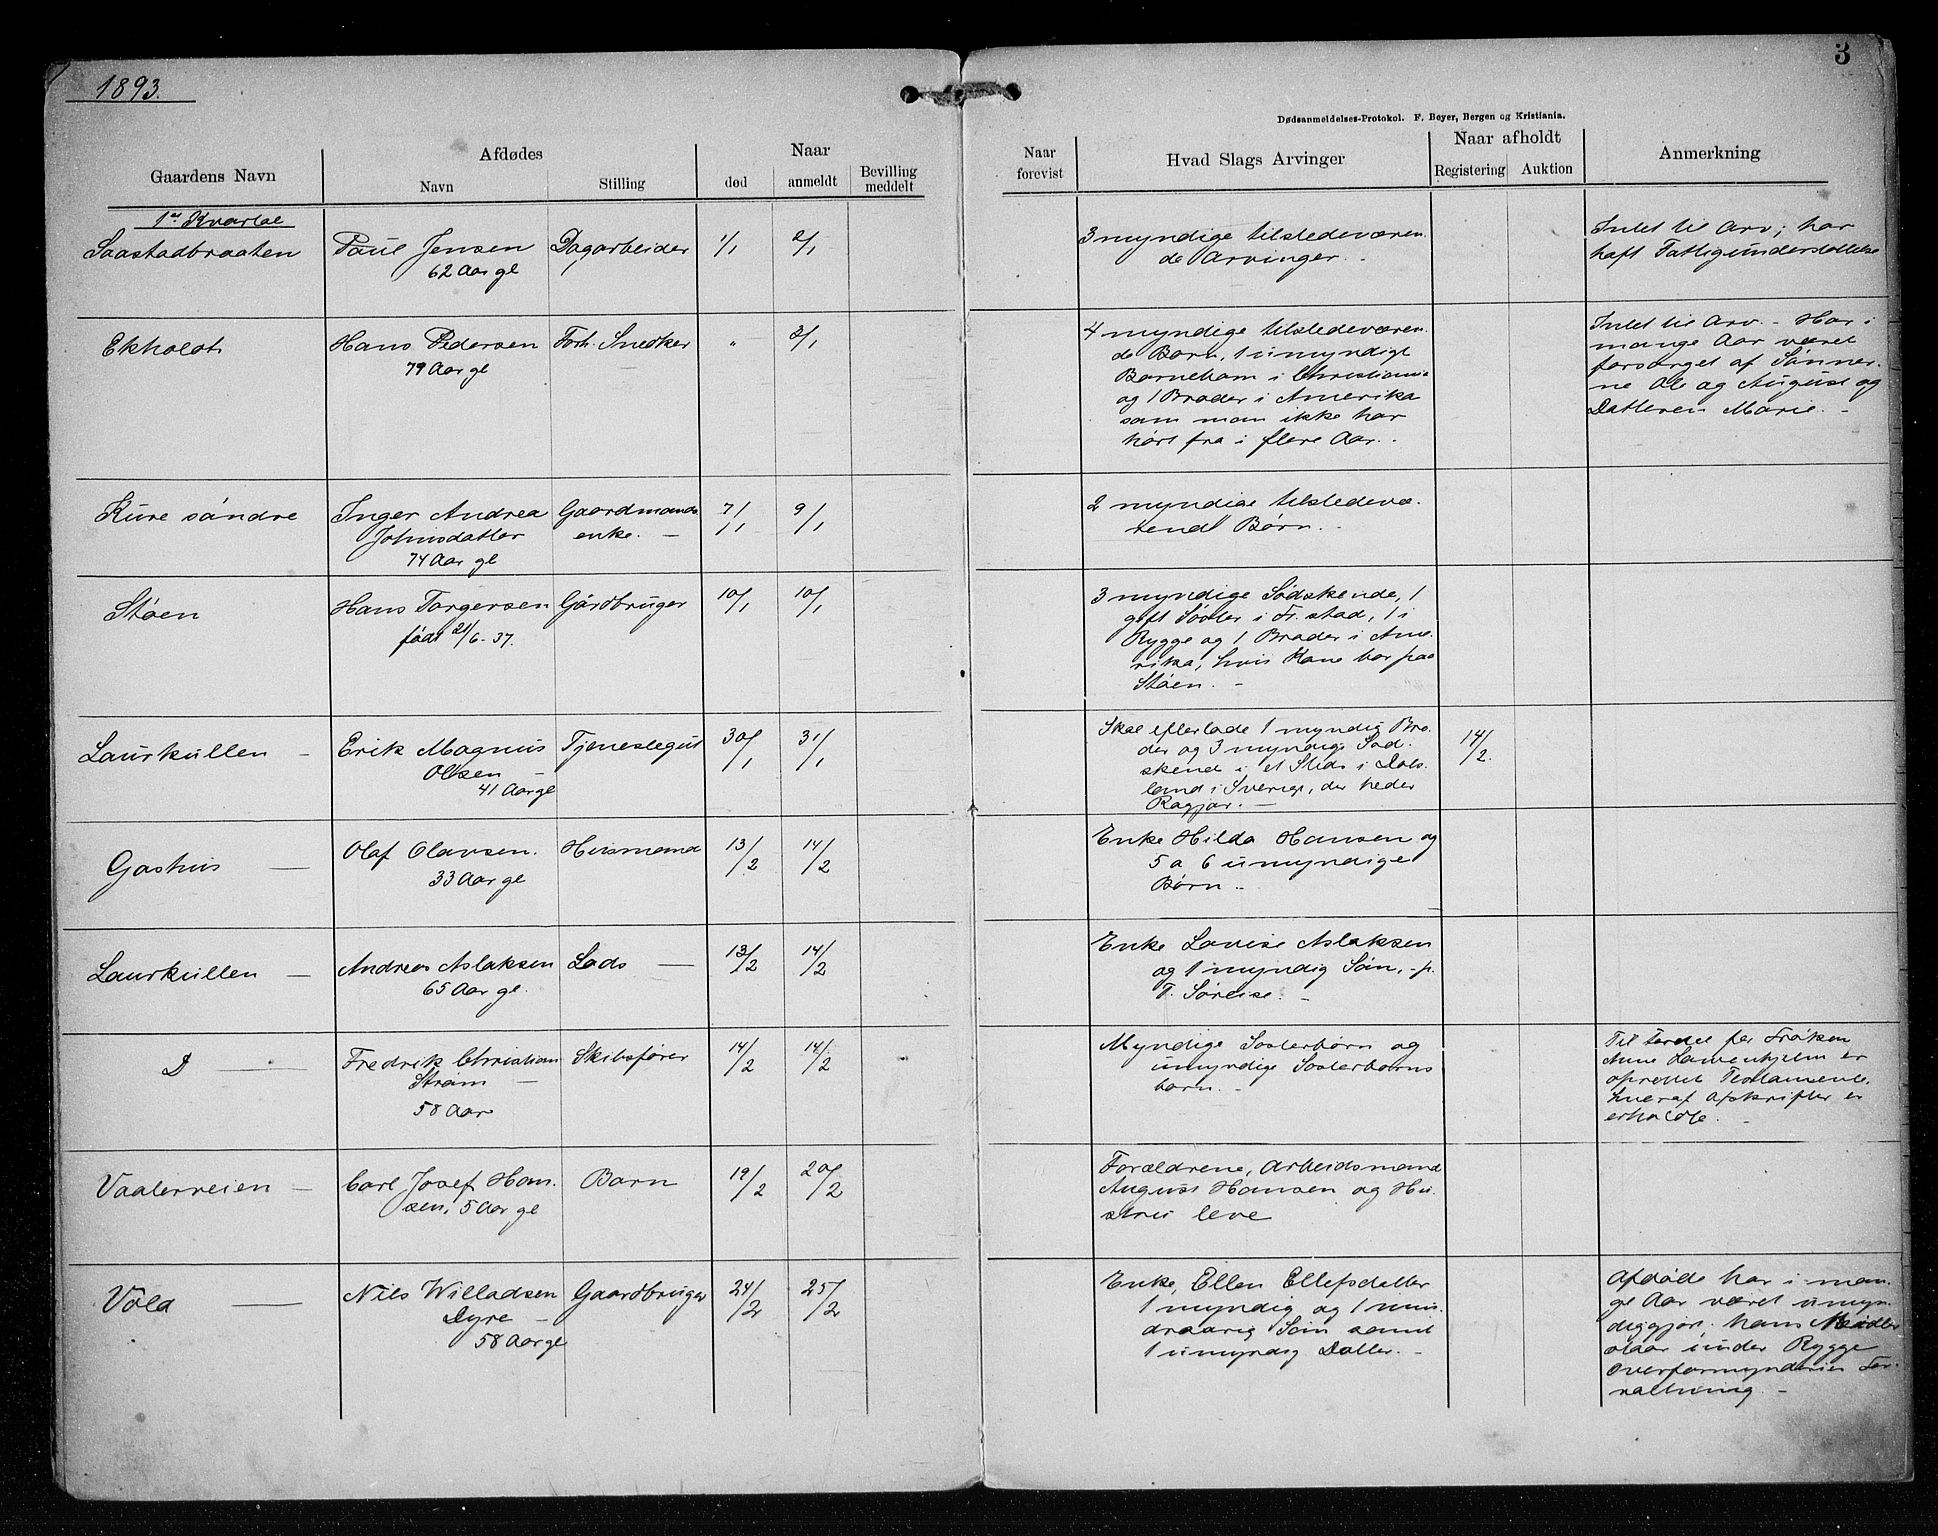 1893.
3
Dødsanmeldelses-Protokol. F. Beyer, Bergen og Kristiania.
Gaardens Navn
Afdødes
Navn
Stilling
Naar
død
anmeldt
Bevilling
meddelt
Naar
forevist
Hvad Slags Arvinger
Naar afholdt
Registering
Auktion
Anmerkning
1ste Kvartal
Saastadbraaten
Paul Jensen
62 Aar gl
Dagarbeider
1/1
2/1
3 myndige tilstedeværen
de Arvinger. -
Intet til Arv; har
haft Fattigunderstøttelse
Ekholdt
Hans Pedersen
79 Aar gl
Forh. Snedker
"
3/1
4 myndige tilstedeværen
de Børn, 1 umyndigt
Barnebarn i Christiania
og 1 Broder i Amerika
som man ikke har
hørt fra i flere Aar. -
Intet til Arv. - Har i
mange Aar været
forsørget af Sønner-
ne Ole og August og
Datteren Marie. -
Kure søndre
Inger Andrea
Johnsdatter
74 Aar gl
Gaardmands
enke. -
7/1
9/1
2 myndige tilstedevæ-
rende Børn. -
Støen
Hans Torgersen
født 21/6-37.
Gårdbruger
10/1
10/1
3 myndige Sødskende, 1
gift Søster i Fr.stad, 1 i
Rygge og 1 Broder i Ame-
rika, hvis Kone bor paa
Støen. -
Laurkullen -
Erik Magnus
Olsen -
41 Aar gl
Tjenestegut
30/1
31/1
Skal efterlade 1 myndig Bro-
der og 3 myndige Sød-
skend i et Sted i Dals-
land i Sverige, der heder
Ragjør. -
14/2.
Gashus -
Olaf Olavsen.
33 Aar gl
Husmand
13/2
14/2
Enke Hilda Hansen og
5 a 6 umyndige
Børn. -
Laurkullen -
Andreas Aslaksen
65 Aar gl.
Lods -
13/2
14/2
Enke Lovise Aslaksen
og 1 myndig Søn, - p.
T. Søreise. -
D -
Fredrik Christian
Strøm -
58 Aar
Skibsfører
14/2
14/2
Myndige Søsterbørn og
umyndige Søsterbørns
børn. -
Til fordel for Frøken
Anne Løvenhjelm er
oprettet Testamente,
hvoraf Afskrifter er
erholdte. -
Vaalerveien -
Carl Josef Han-
sen, 5 Aar gl
Barn
19/2
20/2
Forældrene, Arbeidsmand
August Hansen og Hu-
stru leve
Vold -
Nils Willadsen
Dyre -
58 Aar gl
Gaardbruger
24/2
25/2
Enke, Ellen Ellefsdatter
1 myndig og 1 min-
draarig Søn samt
1 umyndig Datter. -
Afdøde har i man-
ge Aar været umyn-
diggjort. hans Midler
staar under Rygge
Overformynderies For-
valtning. -